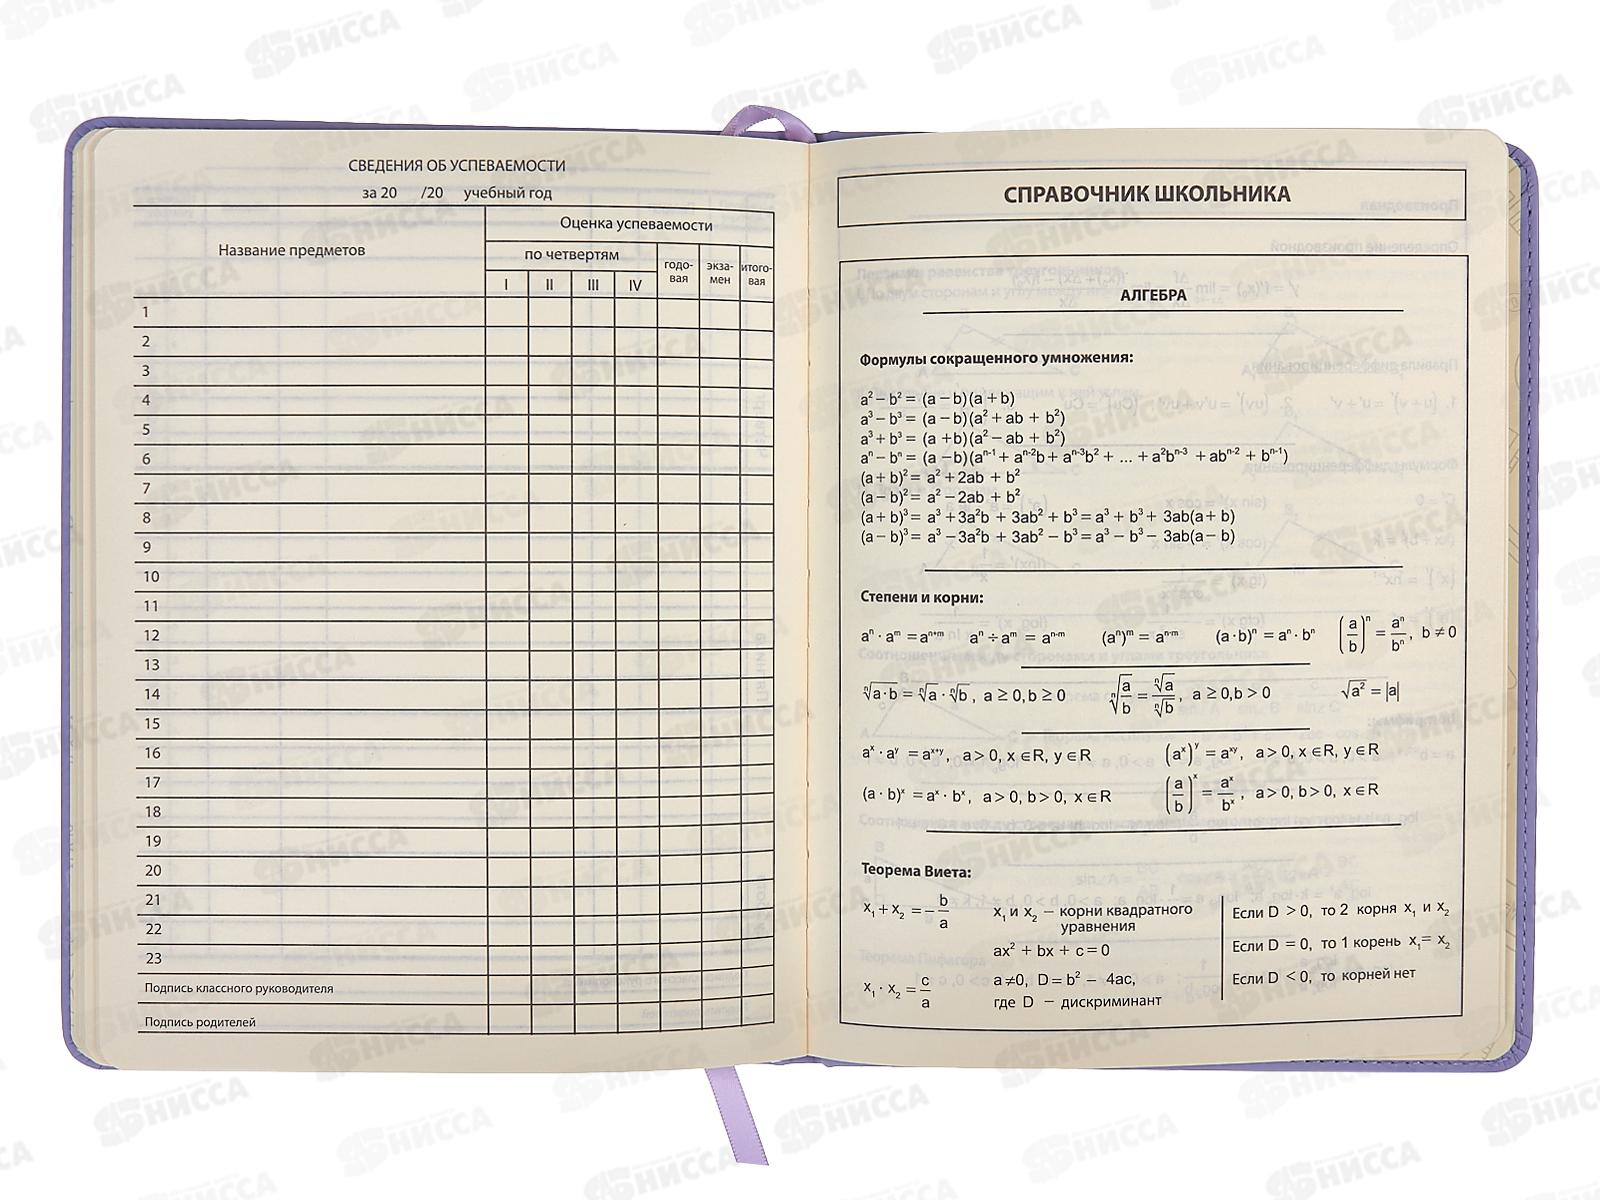 СВЕДЕНИЯ ОБ УСПЕВАЕМОСТИ
за 20 /20 учебный год
Название предметов
Оценка успеваемости
по четвертям
I II III IV
годо-
вая
экза-
мен
итого-
вая
1
2
3
4
5
6
7
8
9
10
11
12
13
14
15
16
17
18
19
20
21
22
23
Подпись классного руководителя
Подпись родителей
СПРАВОЧНИК ШКОЛЬНИКА
АЛГЕБРА
Формулы сокращенного умножения:
a² – b² = (a – b)(a + b)
a³ – b³ = (a – b)(a² + ab + b²)
a³ + b³ = (a + b)(a² – ab + b²)
aⁿ – bⁿ = (a – b)(aⁿ⁻¹ + aⁿ⁻²b + aⁿ⁻³b² + ... + a²bⁿ⁻³ + abⁿ⁻² + bⁿ⁻¹)
(a + b)² = a² + 2ab + b²
(a – b)² = a² – 2ab + b²
(a + b)³ = a³ + 3a²b + 3ab² + b³ = a³ + b³ + 3ab(a + b)
(a – b)³ = a³ – 3a²b + 3ab² – b³ = a³ – b³ – 3ab(a – b)
Степени и корни:
aⁿ · aᵐ = aⁿ⁺ᵐ aⁿ ÷ aᵐ = aⁿ⁻ᵐ (aⁿ)ᵐ = aⁿ·ᵐ (a·b)ⁿ = aⁿ · bⁿ (a/b)ⁿ = aⁿ/bⁿ, b ≠ 0
ⁿ√a·b = ⁿ√a · ⁿ√b, a ≥ 0, b ≥ 0 ⁿ√a/b = ⁿ√a/ⁿ√b, a ≥ 0, b > 0 √a² = |a|
aˣ · aʸ = aˣ⁺ʸ, a > 0, x ∈ R, y ∈ R (aˣ)ʸ = aˣʸ, a > 0, x ∈ R, y ∈ R
(a · b)ˣ = aˣ · bˣ, a > 0, b > 0, x ∈ R (a/b)ˣ = aˣ/bˣ, a > 0, b > 0, x ∈ R
Теорема Виета:
x₁ + x₂ = – b/a
x₁ · x₂ = c/a
x₁ и x₂ – корни квадратного
уравнения
ax² + bx + c = 0
a ≠ 0, D = b² – 4ac,
где D – дискриминант
Если D > 0, то 2 корня x₁ и x₂
Если D = 0, то 1 корень x₁ = x₂
Если D < 0, то корней нет